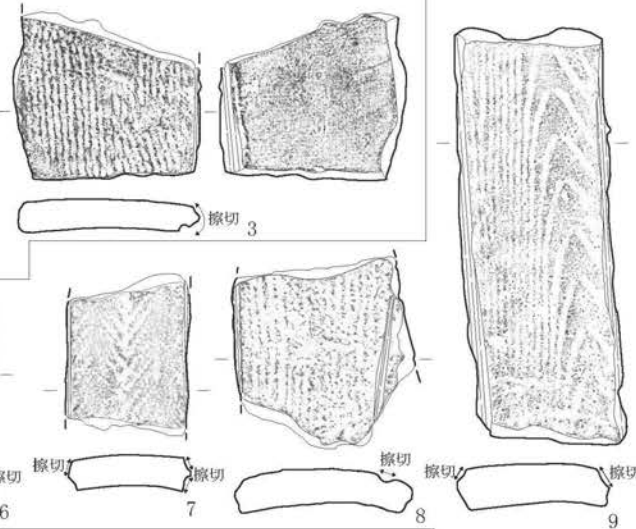 擦切
3
擦切
6
擦切
擦切
7
擦切
8
擦切
擦切
9